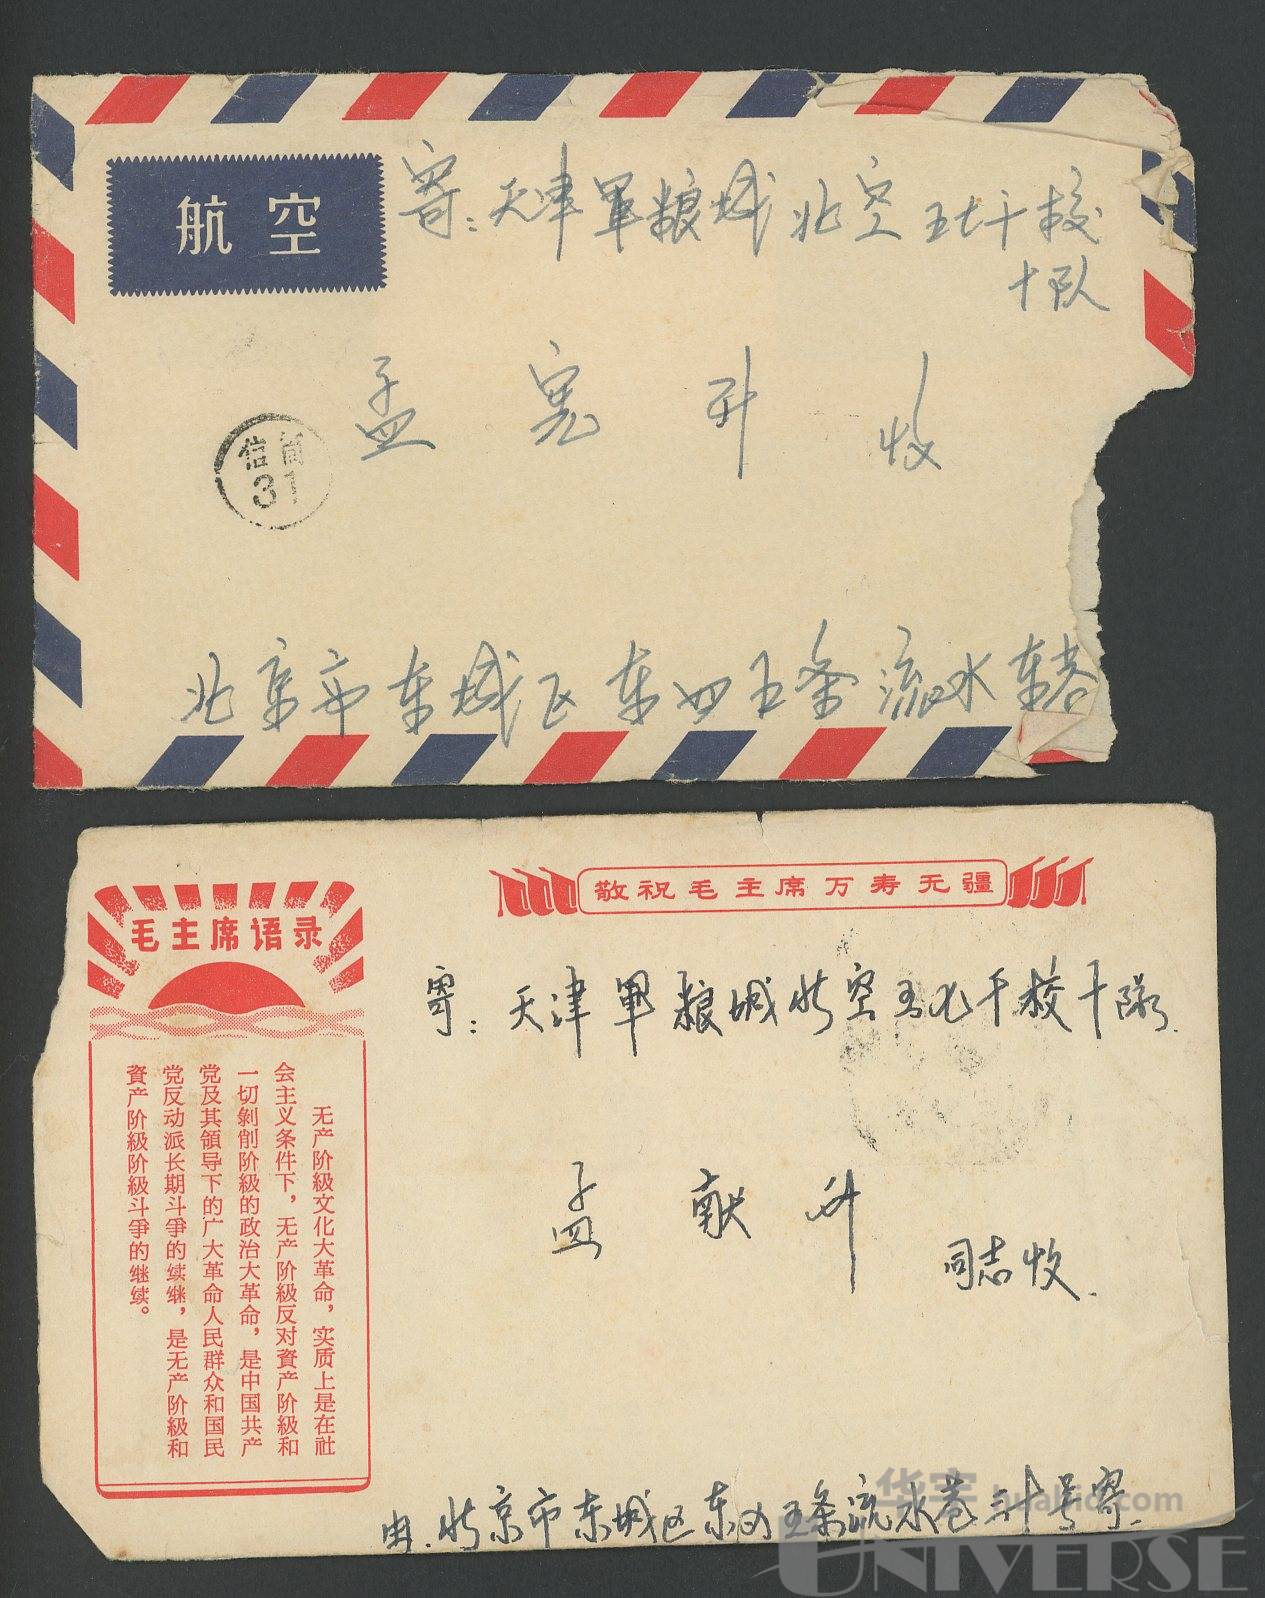 航空
寄：天津軍粮城北空五七干校
十队
孟宪升 收
信筒
31
北京市东城区东四五条流水东巷
敬祝毛主席万寿无疆
毛主席语录
无产阶級文化大革命，实质上是在社
会主义条件下，无产阶級反对資产阶級和
一切剝削阶級的政治大革命，是中国共产
党及其領导下的广大革命人民群众和国民
党反动派长期斗爭的续继，是无产阶級和
資产阶級阶級斗爭的继续。
寄：天津軍粮城北空五七干校十隊.
孟献升
同志收.
由.北京市东城区东四五条流水巷三十号寄.
华宇 huabid.com
UNIVERSE